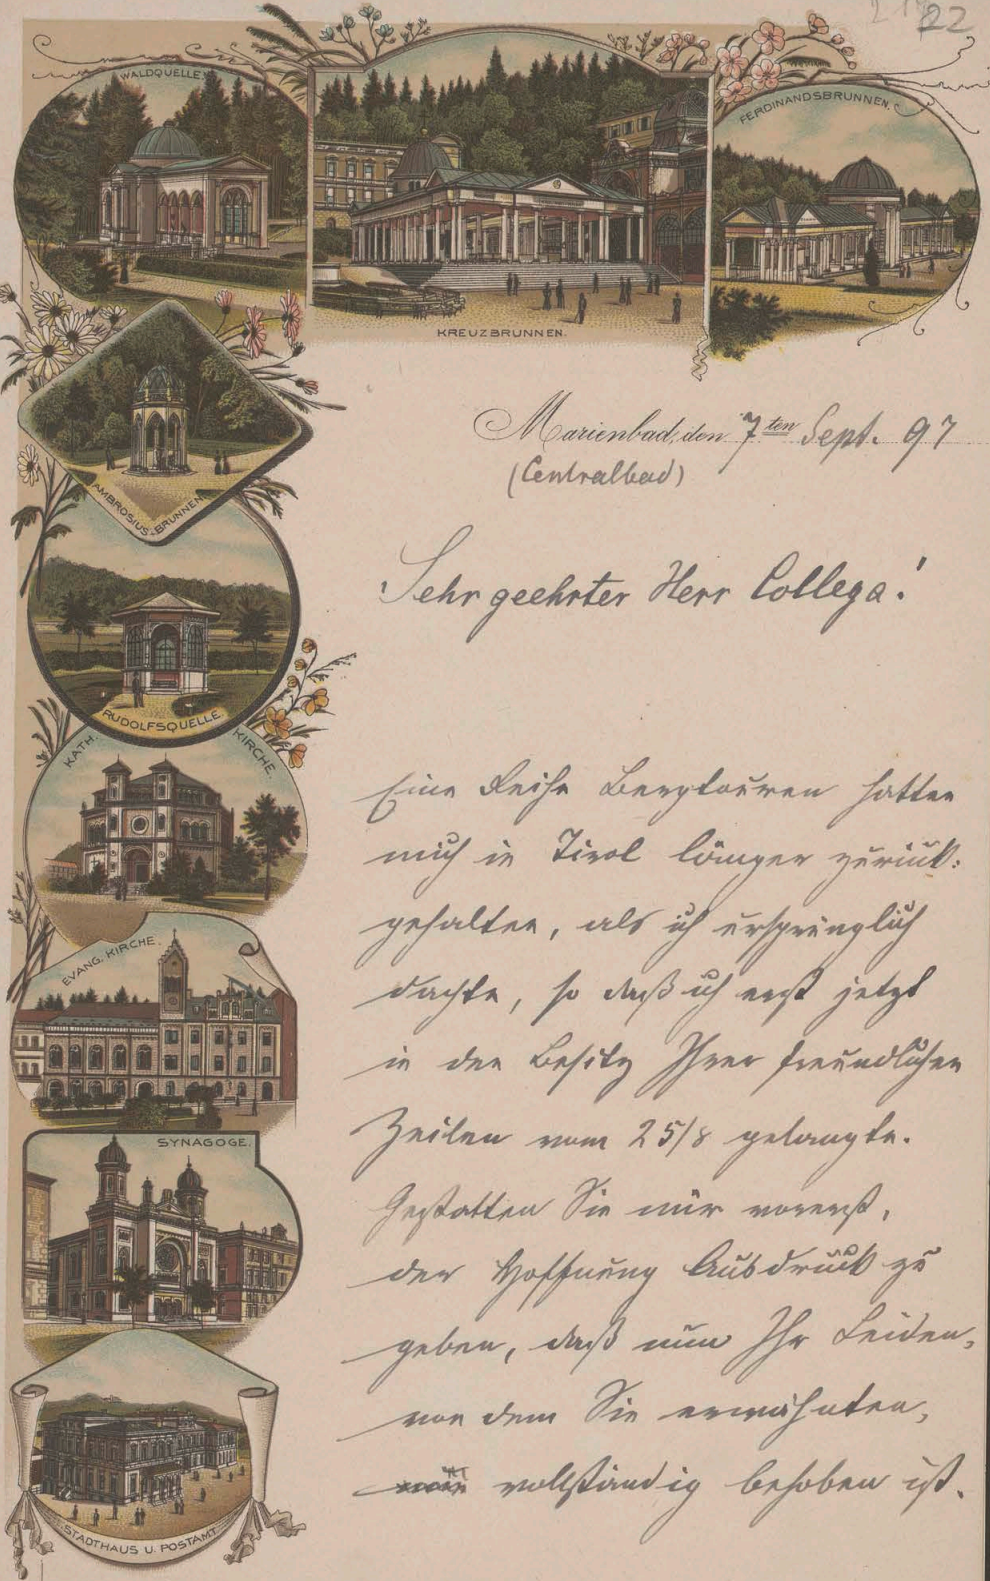 22
WALDQUELLE.
FERDINANDSBRUNNEN.
KREUZBRUNNEN.
AMBROSIUS-BRUNNEN
RUDOLFSQUELLE
KATH. KIRCHE.
EVANG. KIRCHE.
SYNAGOGE.
STADTHAUS U. POSTAMT
Marienbad, den 7ten Sept. 97
(Centralbad)
Sehr geehrter Herr Collega!
Eine Reihe Bergtouren hatten
mich in Tirol länger zurück:
gehalten, als ich ursprünglich
dachte, so daß ich erst jetzt
in den Besitz Ihrer freundlichen
Zeilen vom 25/8 gelangte.
Gestatten Sie mir vorerst,
der Hoffnung Ausdruck zu
geben, daß nun Ihr Leiden,
von dem Sie erwähnten,
vollständig behoben ist.